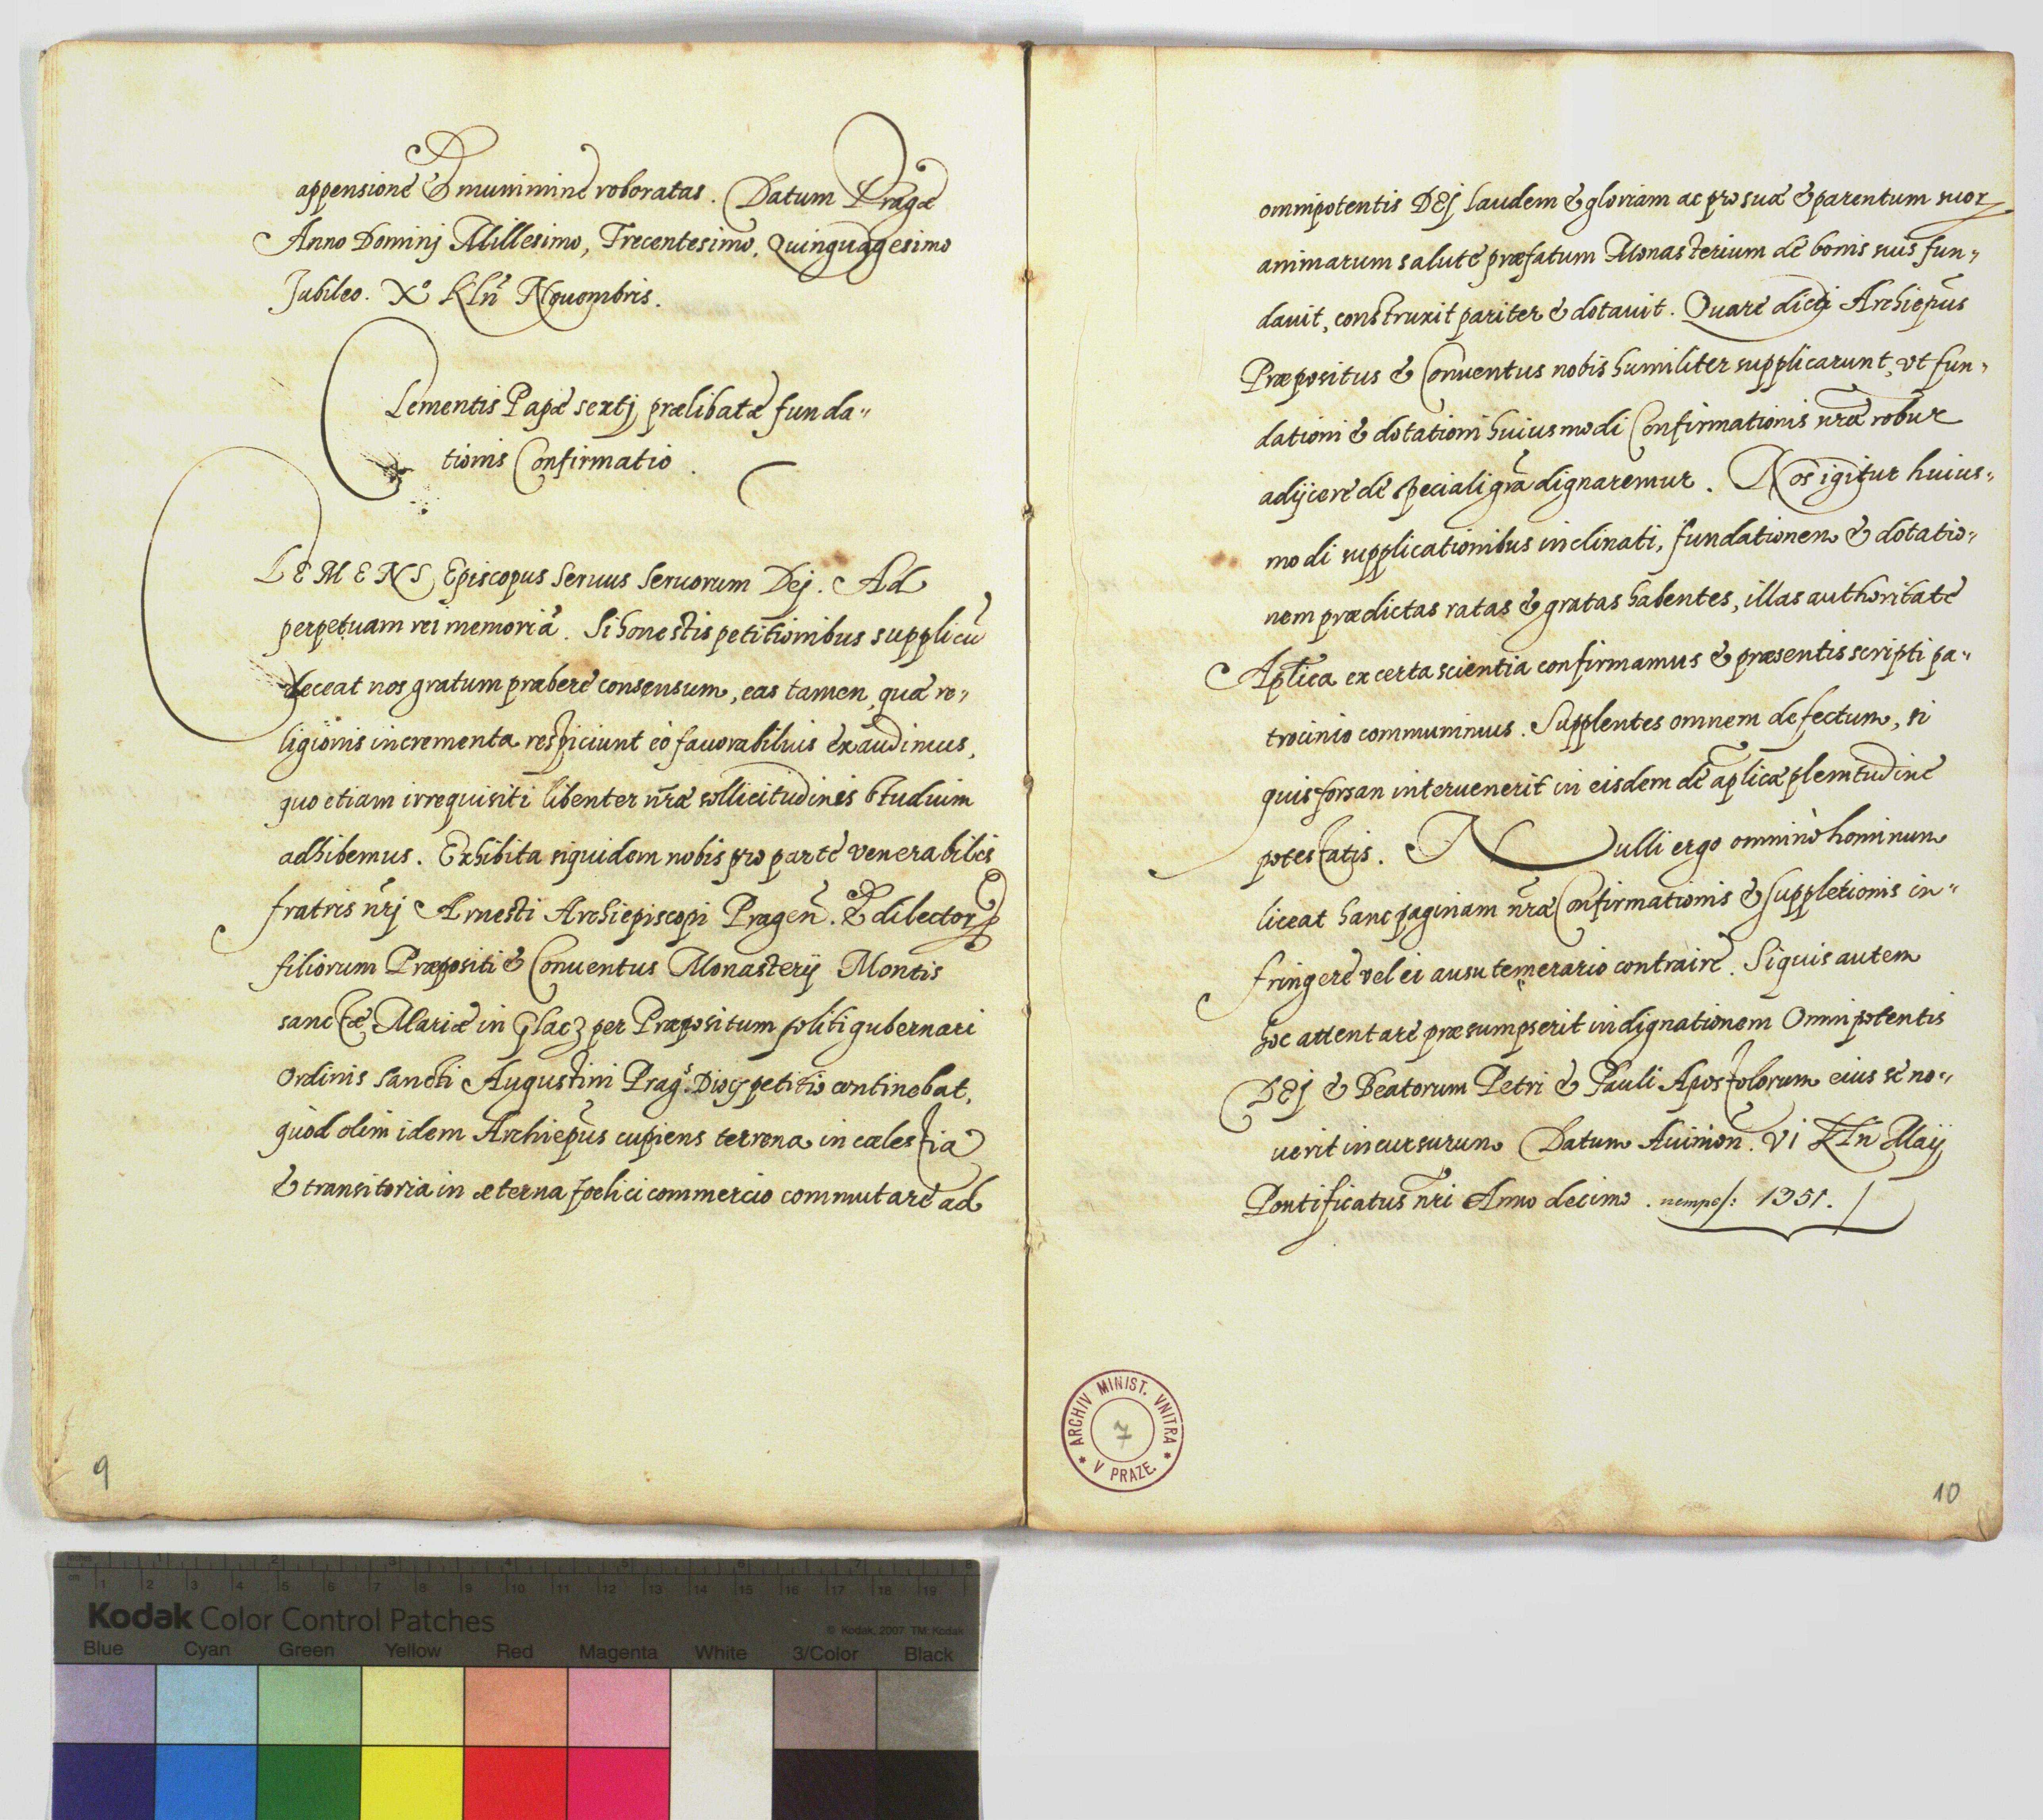 appensione & munimine roboratas. Datum Pragæ
Anno Dominj Millesimo, Trecentesimo, Quinquagesimo
Jubileo. Xº Kln̄ Nouembris.
Clementis Papæ sextj prælibatæ funda〃
tionis Confirmatio.
CLEMENS Episcopus Seruus Seruorum Dej. Ad
perpetuam rei memoriā. Si honestis petitionibus supplicū
deceat nos gratum præbere consensum, eas tamen, quæ re〃
ligionis incrementa respiciunt eò fauorabilius exaudimus,
quo etiam irrequisiti libenter nr̄æ sollicitudinis studium
adhibemus. Exhibita siquidem nobis pro parte venerabilis
fratris nr̄j Arnesti Archiepiscopi Pragen̄. & dilectorꝝ
filiorum Præpositi & Conuentus Monasterij Montis
sanctæ Mariæ in Glacz per Præpositum soliti gubernari
Ordinis Sancti Augustini Prag: petitio continebat,
quòd olim idem Archiepūs cupiens terrena in cælestia
& transitoria in æterna fœlici commercio commutare ad
omnipotentis DEj laudem & gloriam ac pro sua & parentum suorꝝ
animarum salute præfatum Monasterium de bonis suis fun〃
dauit, construxit pariter & dotauit. Quare dicti Archiepūs
Præpositus & Conuentus nobis humiliter supplicarunt, vt fun〃
dationi & dotationi huiusmodi Confirmationis nr̄æ robur
adijcere de speciali grā dignaremur. Nos igitur huius〃
modi supplicationibus inclinati, fundationem & dotatio〃
nem prædictas ratas & gratas habentes, illas authoritate
Aplīca ex certa scientia confirmamus & præsentis scripti pa〃
trocinio communimus. Supplentes omnem defectum, si
quis forsan interuenerit in eisdem de aplīcæ plenitudine
potestatis. Nulli ergo omninò hominum
liceat hanc paginam nr̄æ Confirmationis & Suppletionis in〃
fringere vel ei ausu temerario contraire. Siquis autem
hoc attentare præsumpserit indignationem Omnipotentis
DEj & Beatorum Petri & Pauli Apostolorum eius se no〃
uerit incursurum Datum Auinion̄. VI Kln̄ Maij
Pontificatus nr̄i Anno decimo. nempe/: 1351. /
ARCHIV MINIST. VNITRA * V PRAZE. *
7
9
10
inches
cm 1 2 3 4 5 6 7 8 9 10 11 12 13 14 15 16 17 18 19
Kodak Color Control Patches
© Kodak, 2007 TM: Kodak
Blue Cyan Green Yellow Red Magenta White 3/Color Black